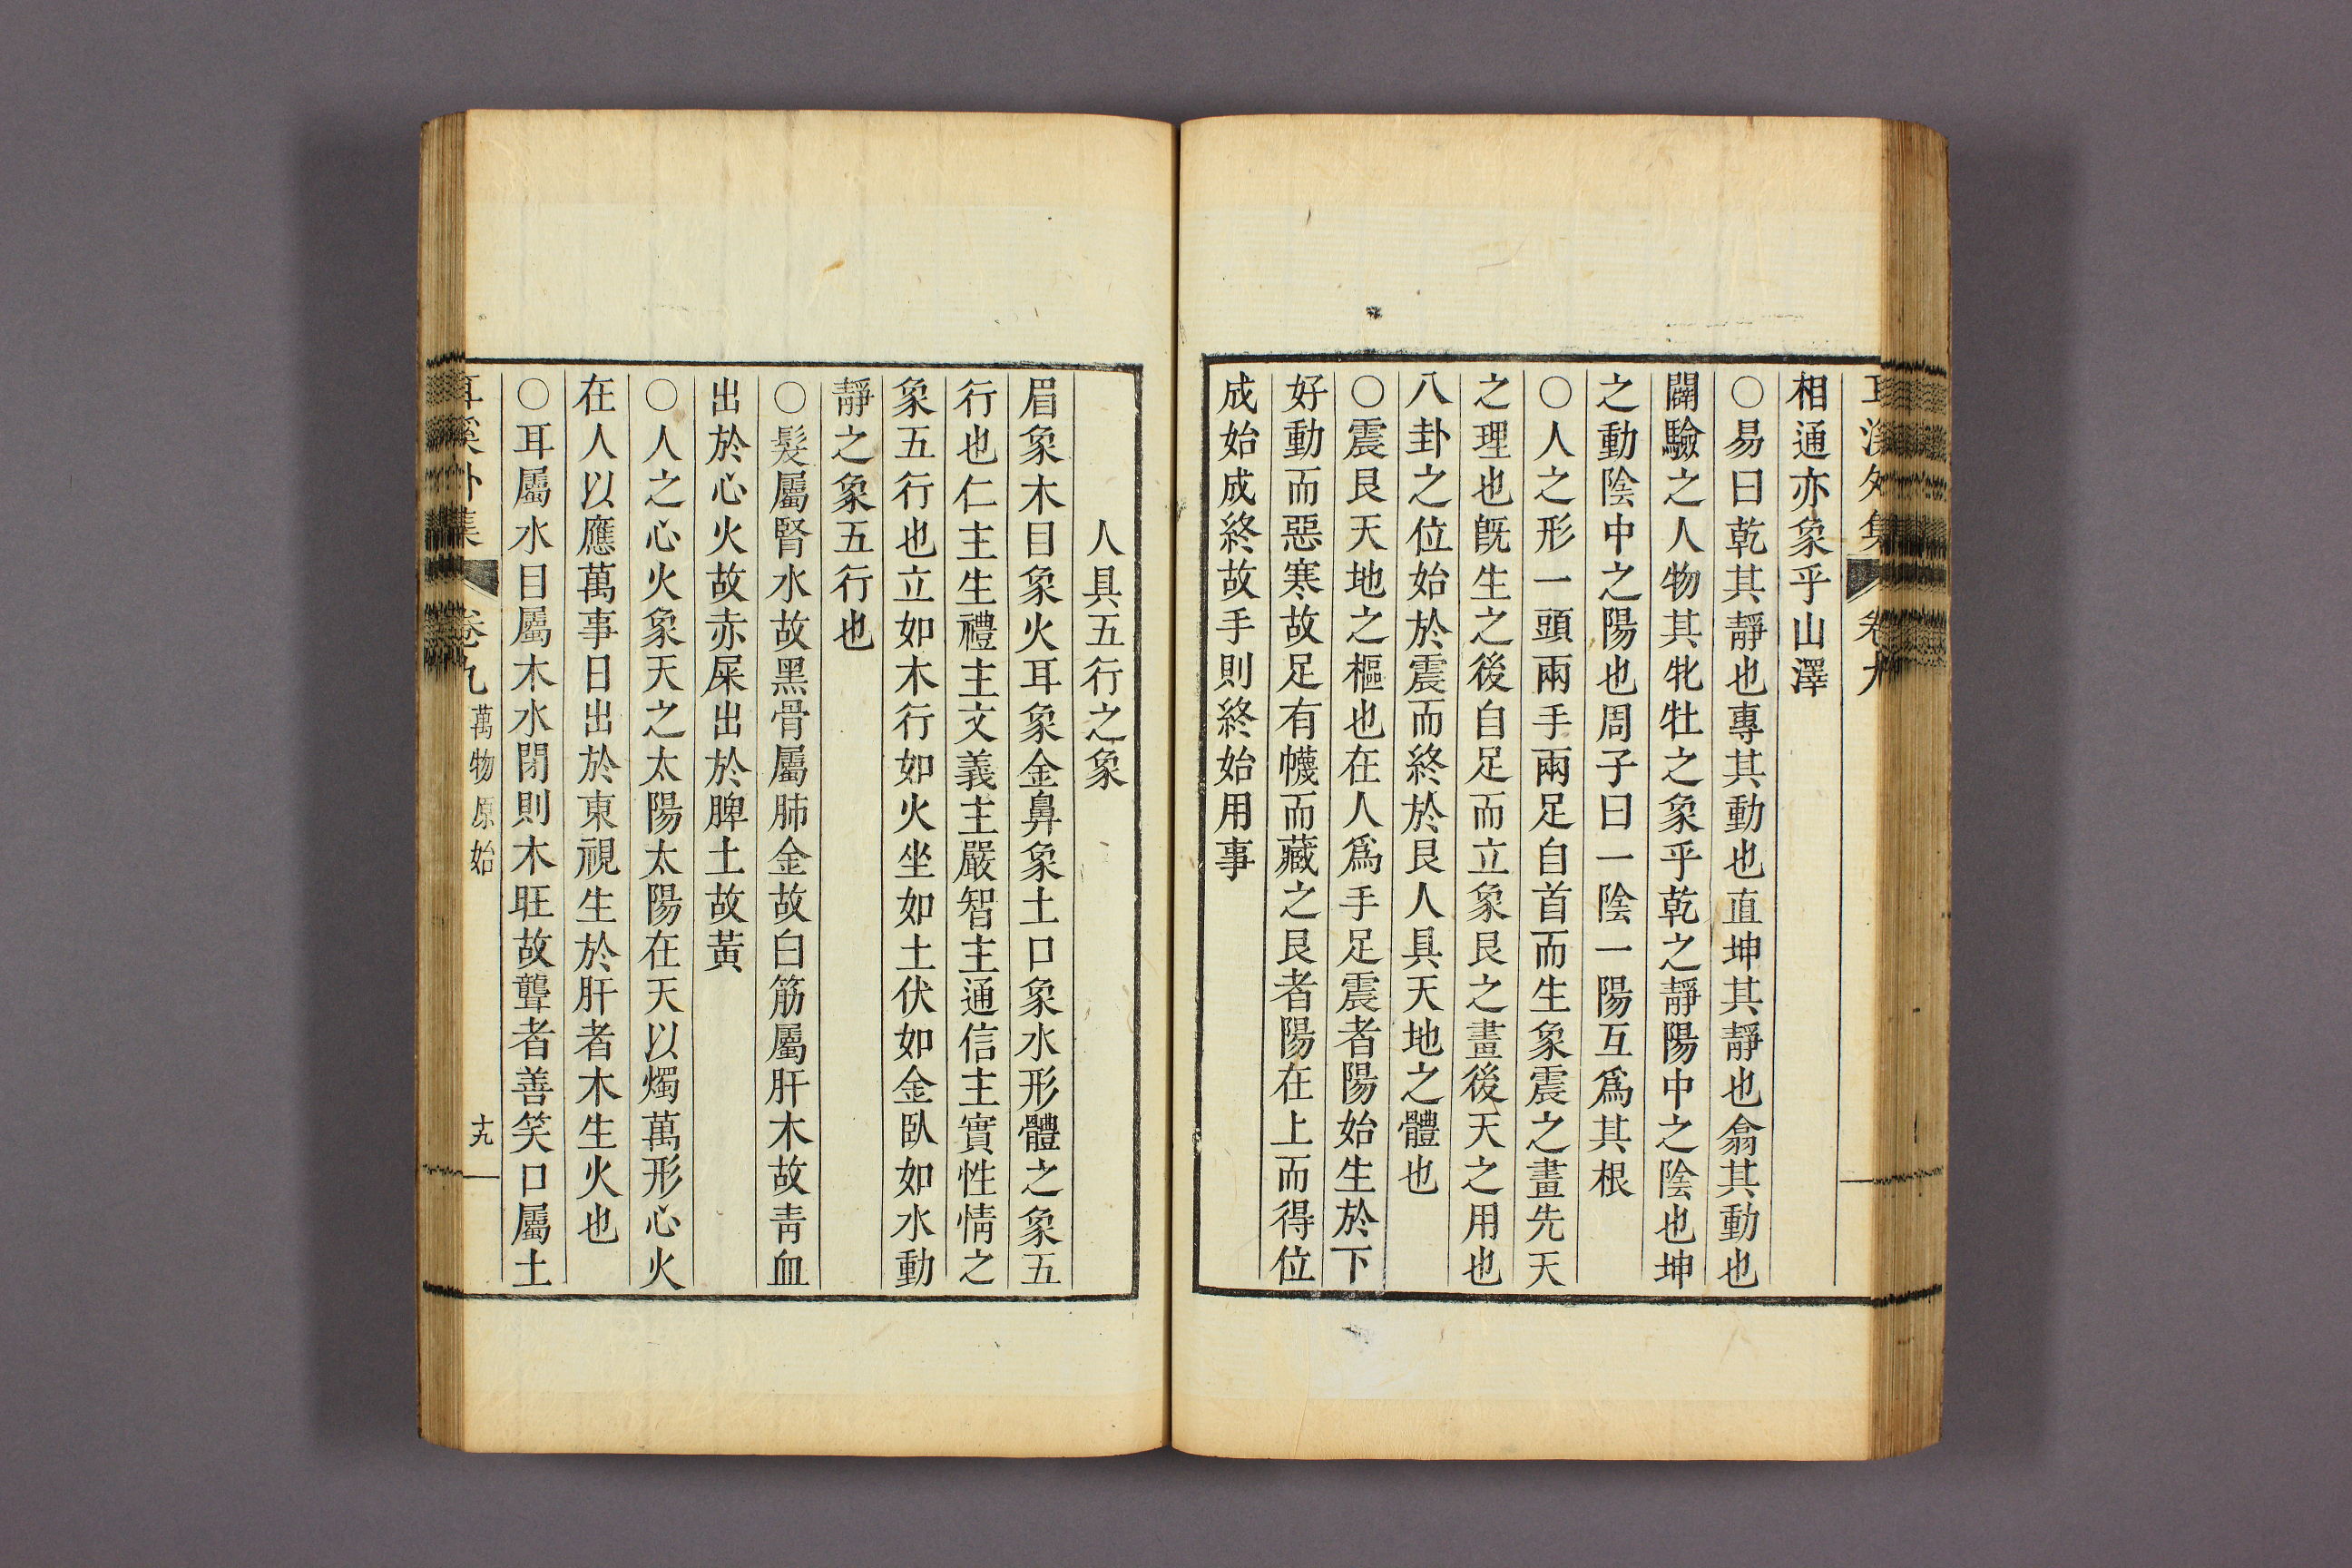 耳溪外集 卷九
相通亦象乎山澤
○易曰乾其靜也專其動也直坤其靜也翕其動也
闢驗之人物其牝牡之象乎乾之靜陽中之陰也坤
之動陰中之陽也周子曰一陰一陽互爲其根
○人之形一頭兩手兩足自首而生象震之畫先天
之理也旣生之後自足而立象艮之畫後天之用也
八卦之位始於震而終於艮人具天地之體也
○震艮天地之樞也在人爲手足震者陽始生於下
好動而惡寒故足有幭而藏之艮者陽在上而得位
成始成終故手則終始用事
人具五行之象
眉象木目象火耳象金鼻象土口象水形體之象五
行也仁主生禮主文義主嚴智主通信主實性情之
象五行也立如木行如火坐如土伏如金臥如水動
靜之象五行也
○髮屬腎水故黑骨屬肺金故白筋屬肝木故靑血
出於心火故赤屎出於脾土故黃
○人之心火象天之太陽太陽在天以燭萬形心火
在人以應萬事日出於東視生於肝者木生火也
○耳屬水目屬木水閉則木旺故聾者善笑口屬土
耳溪外集 卷九 萬物原始 十九